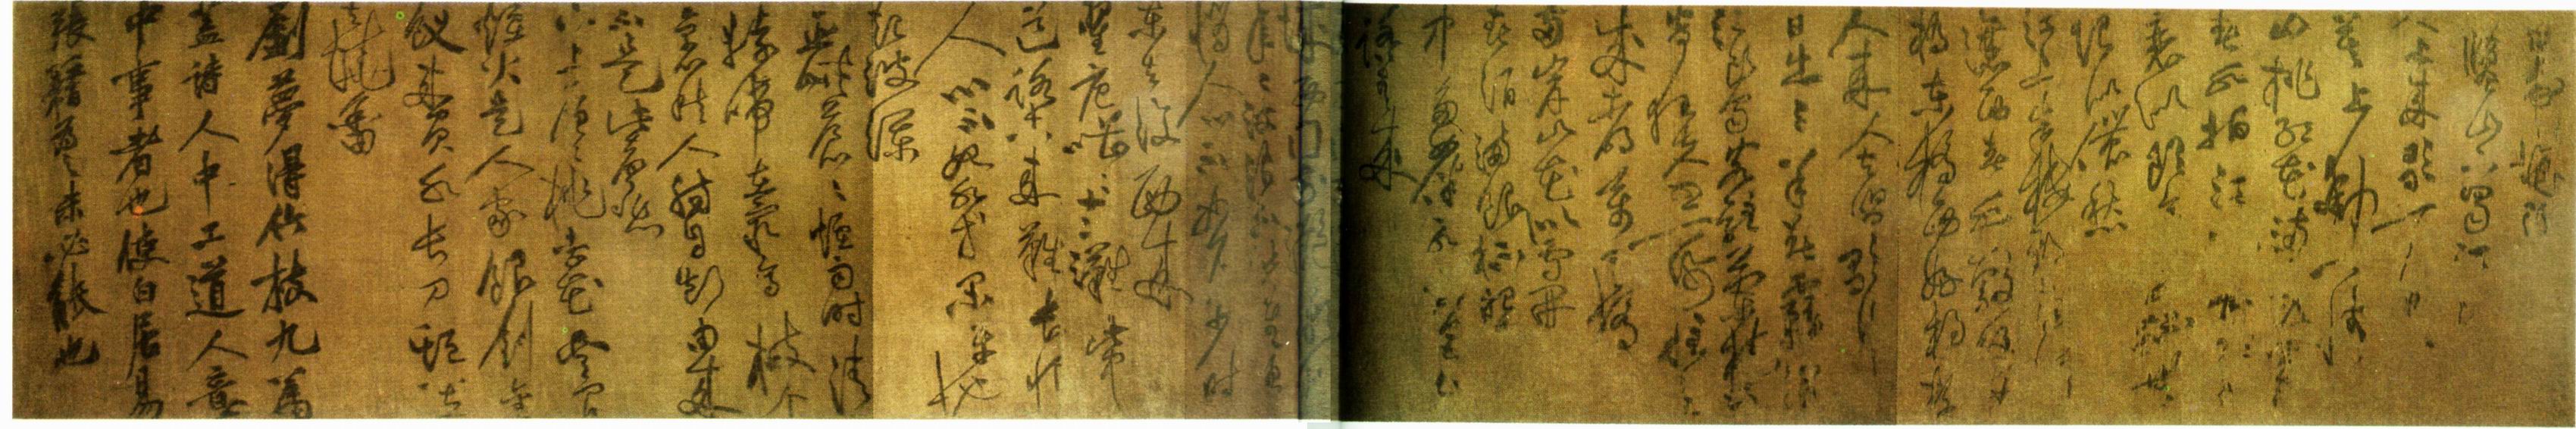 鹽山下蜀江
人上來歌一
莫上動鄉情
山桃紅花滿上頭
春水拍江流
衰似郎意水流無
限似儂愁
江上朱樓新雨晴
瀼西春水縠紋生
橋東橋西好楊柳
人來人去唱歌行
日出三竿春霧消
江頭蜀客駐蘭橈
寄狂夫書一紙住
成都萬里橋
兩岸山花似雪開
春酒滿銀杯
中多女伴永安宮外
踏青來
城西門前灩澦
年年波浪不能摧
惱人心不如石少時
東去復西來
瞿唐嘈嘈十二灘
道路古來難長恨
人心不如水等閑平地
起波瀾
巫峽蒼蒼煙雨時清
猿啼在最高枝箇
裏愁人腸自斷由來
不是此聲悲
山上層層桃李花雲間
煙火是人家銀釧金
釵來負水長刀短笠
去燒畬
劉夢得竹枝九篇
蓋詩人中工道人意
中事者也使白居易
張籍為之未必能也